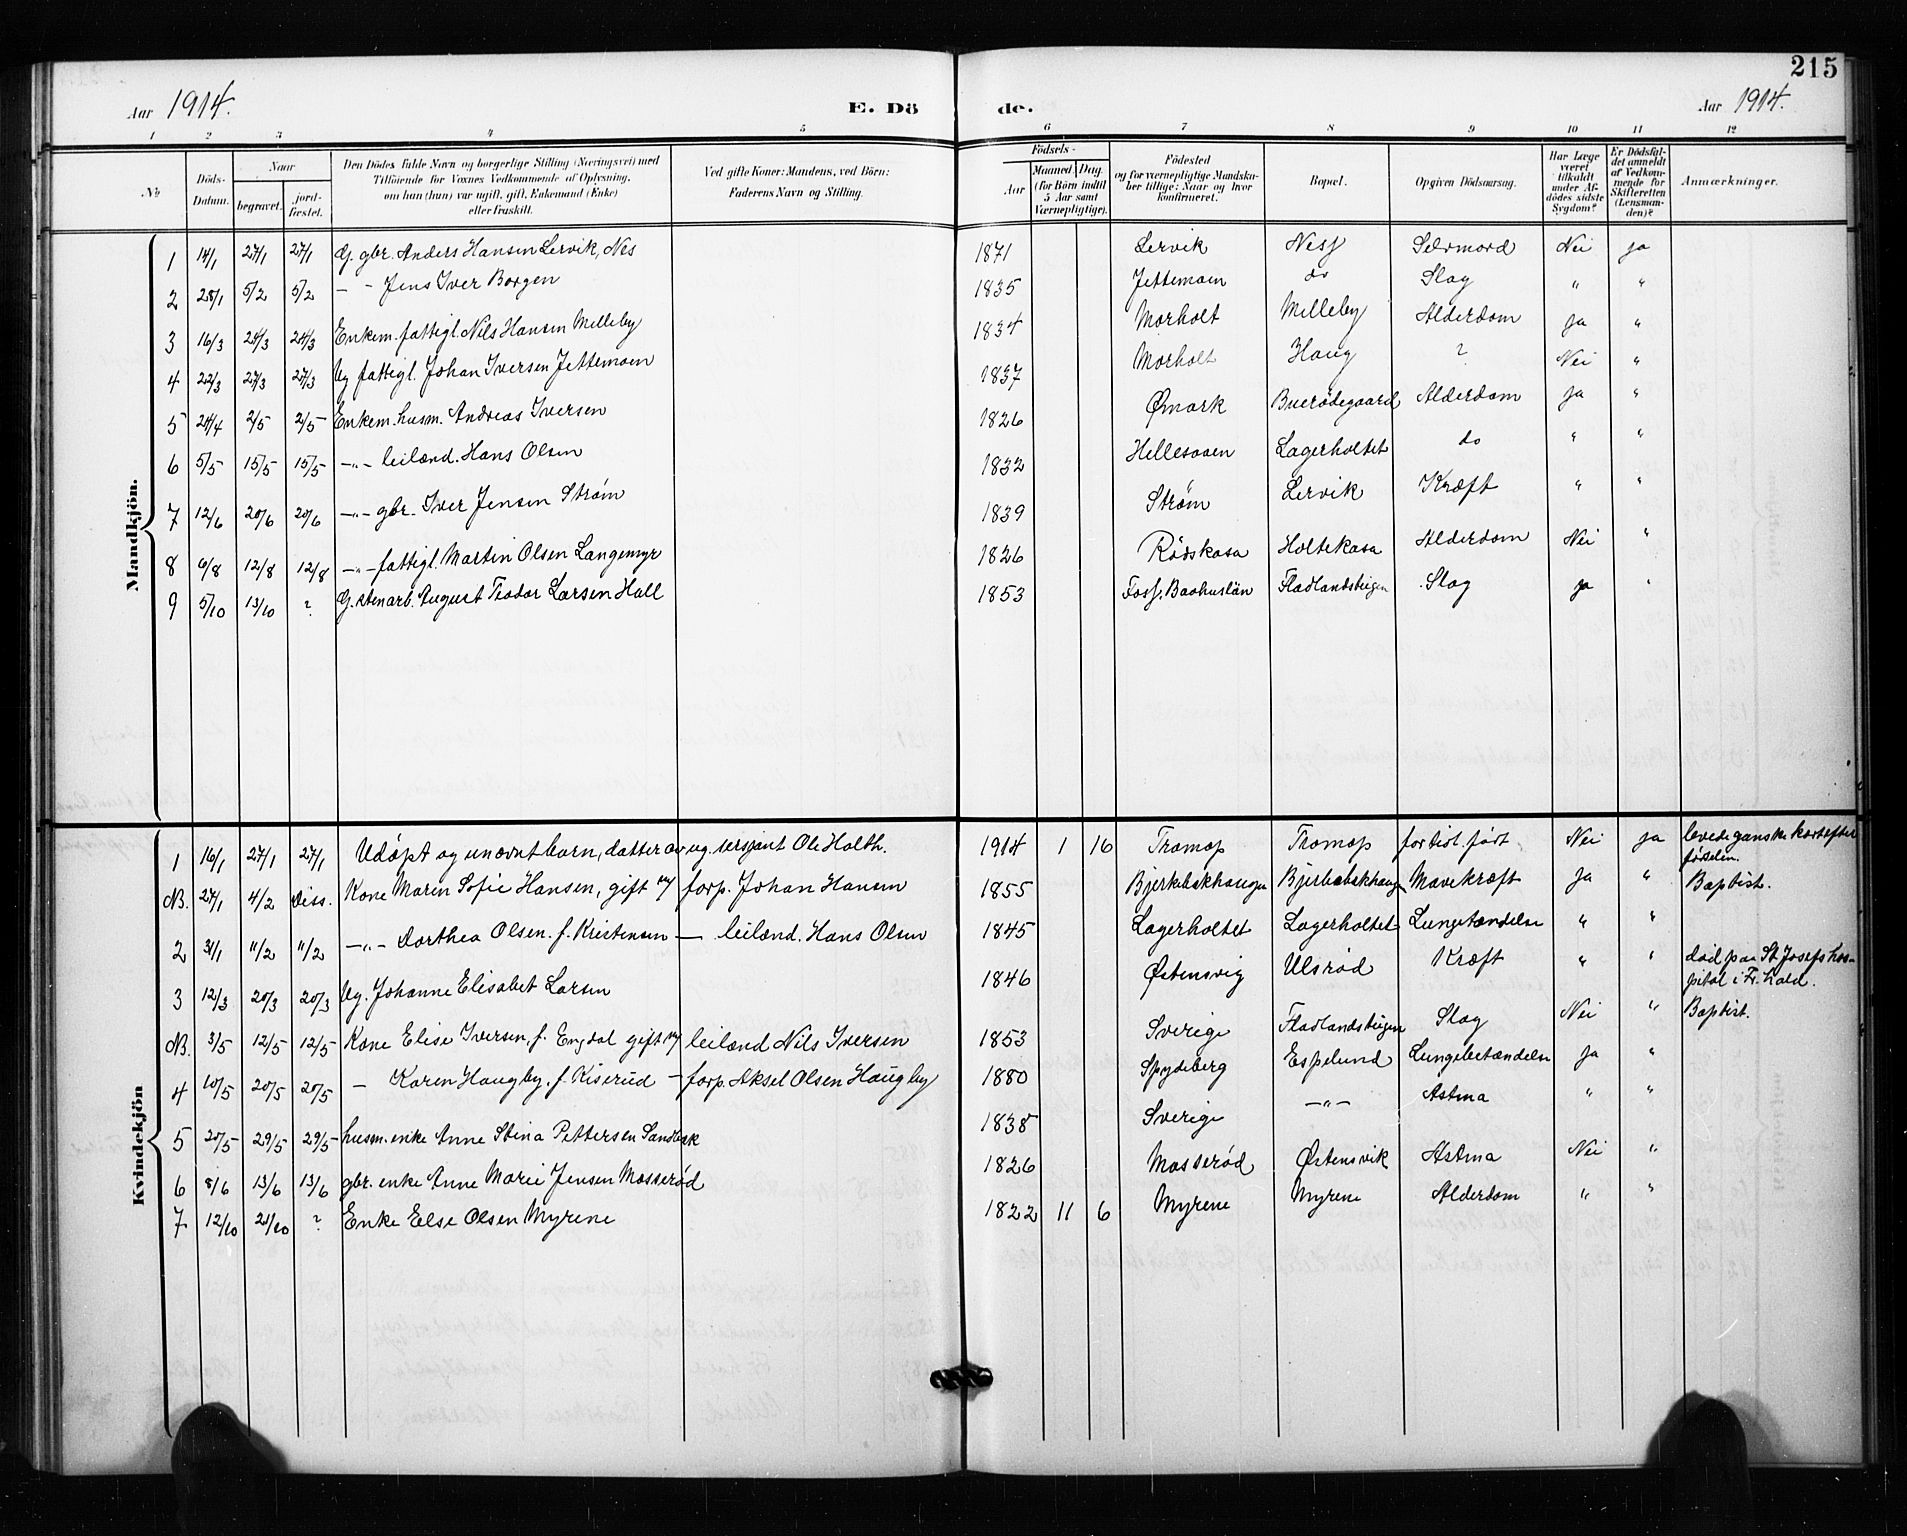 215
Aar 1914. E. Dö de. Aar 1914.
1 2 3 4 5 6 7 8 9 10 11 12
No Döds-Datum. Naar begravet. jord-fæstet. Den Dödes fulde Navn og borgerlige Stilling (Næringsvei) med Tilföiende for Voxnes Vedkommende af Oplysning, om han (hun) var ugift, gift, Enkemand (Enke) eller fraskilt. Ved gifte Koner: Mandens, ved Börn: Faderens Navn og Stilling. Födsels- Aar Maaned. Dag. (for Börn indtil 5 Aar samt Værnepligtige). Födested og for værnepligtige Mandskaber tillige: Naar og hvor konfirmeret. Bopæl. Opgiven Dödsaarsag. Har Læge været tilkaldt under Afdödes sidste Sygdom? Er Dödsfaldet anmeldt af Vedkommende for Skifteretten (Lensmanden)? Anmærkninger.
Mandkjön.
1 14/1 27/1 27/1 G. gbr. Anders Hansen Lervik, Nes 1871 Lervik Ness Selvmord Nei ja
2 28/1 5/2 5/2 — - Jens Iver Borgen 1835 Jettemoen do Slag " "
3 16/3 24/3 24/3 Enkem. fattigl. Nils Hansen Milleby 1834 Morholt Milleby Alderdom ja "
4 22/3 27/3 27/3 Ug fattigl. Johan Iversen Jettemoen 1837 Morholt Haug ? Nei "
5 24/4 2/5 2/5 Enkem. husm. Andreas Iversen 1826 Ømark Buerødegaard Alderdom ja "
6 5/5 15/5 15/5 —"— leilænd. Hans Olsen 1832 Hellesaaen Lagerholtet do " "
7 12/6 20/6 20/6 —"— gbr. Iver Jensen Strøm 1839 Strøm Lervik Kræft " "
8 6/8 12/8 12/8 —"— fattigl. Martin Olsen Langemyr 1826 Rødskasa Holtekasa Alderdom Nei "
9 5/10 13/10 ? G. stenarb. August Teodor Larsen Hall 1853 Foss, Baahuslän Fladlandsteigen Slag ja "
Kvindekjön
1 16/1 27/1 27/1 Udøpt og unævnt barn, datter av ug. sersjant Ole Holth. 1914 1 16 Tromop Tromop for tidl. født Nei ja levede ganske kort efter
fødselen.
NB. 27/1 4/2 Diss. Kone Maren Sofie Hansen, gift m/ forp. Johan Hansen 1855 Bjerkebakhaugen Bjerkebakhaugen Mavekræft ja " Baptist.
2 31/1 11/2 11/2 —"— Dorthea Olsen. f. Kristensen — leilænd. Hans Olsen 1845 Lagerholtet Lagerholtet Lungetændelse " "
3 12/3 20/3 20/3 Ug. Johanne Elisabet Larsen 1846 Østensvig Ulsrød Kræft " " død paa St Josefs hos-
pital i Fr. hald.
NB. 3/5 12/5 12/5 Kone Elise Iversen, f. Engdal gift m/ leilænd Nils Iversen 1853 Sverige Fladlandsteigen Slag Nei " Baptist.
4 10/5 20/5 20/5 — Karen Haugby, f. Kiserud — forp. Aksel Olsen Haugby 1880 Spydeberg Espelund Lungebetændelse ja "
5 20/5 29/5 29/5 husm. enke Anne Stina Pettersen Sandbæk 1838 Sverige —"— Astma " "
6 8/6 13/6 13/6 gbr. enke Anne Marie Jensen Masserød 1826 Masserød Østensvik Astma Nei "
7 12/10 21/10 ? Enke Else Olsen Myrene 1822 11 6 Myrene Myrene Alderdom " "